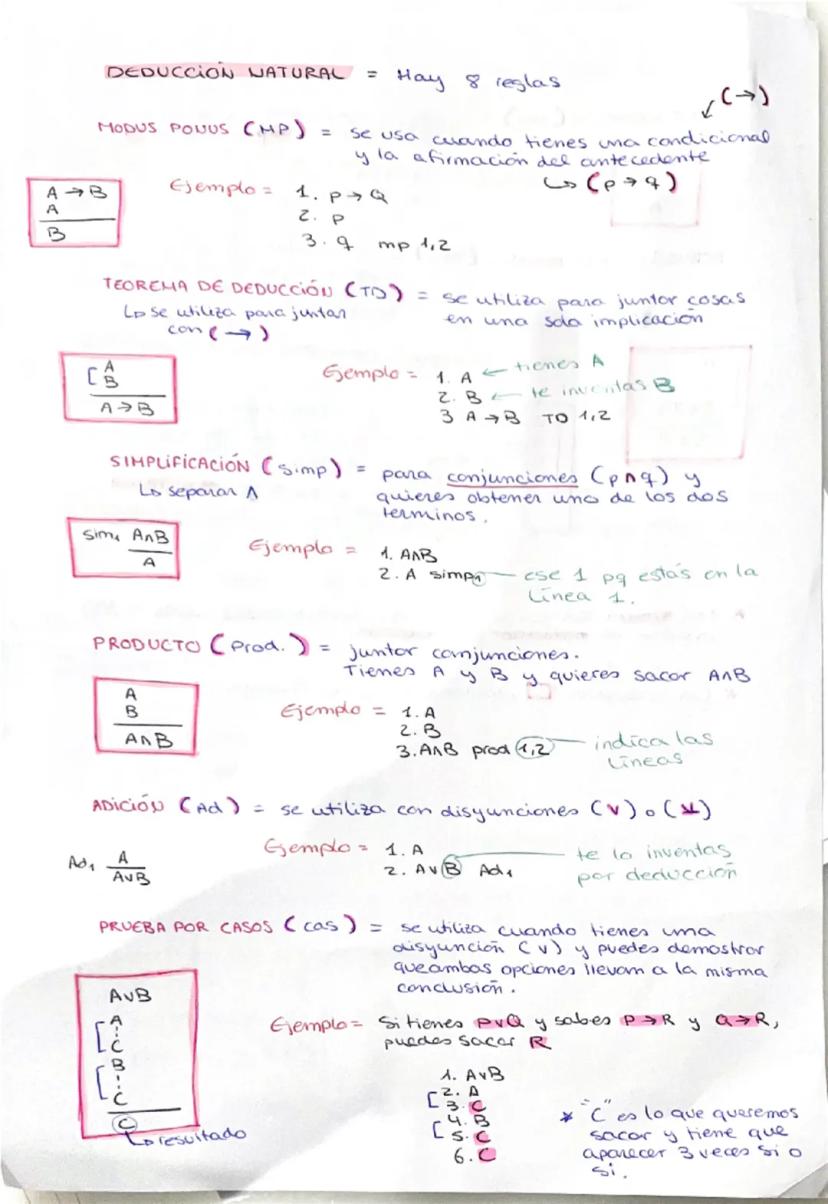 DEDUCCIÓN NATURAL = Hay 8 reglas
(→)
MODUS PONUS (MP) = se usa cuando tienes una condicional
y la afirmación del antecedente
↳ (p → q)
A → B
A
B
Ejemplo = 1. p → Q
2. p
3. q mp 1,2
TEOREMA DE DEDUCCIÓN (TD) = se utiliza para juntar cosas
en una sola implicación
↳ se utiliza para juntar
con (→)
[ A
B
A → B
Ejemplo = 1. A ← tienes A
2. B ← te inventas B
3 A → B TD 1,2
SIMPLIFICACIÓN (simp) = para conjunciones (p ∧ q) y
quieres obtener uno de los dos
terminos.
↳ separar ∧
sim₁ A∧B
A
Ejemplo = 1. A∧B
2. A simp₁ — ese 1 pq estás en la
línea 1.
PRODUCTO (Prod.) = juntar conjunciones.
Tienes A y B y quieres sacar A∧B
A
B
A∧B
Ejemplo = 1. A
2. B
3. A∧B prod 1,2 — indica las
líneas
ADICIÓN (Ad) = se utiliza con disyunciones (∨) o (⊻)
Ad₁ A
A∨B
Ejemplo = 1. A
2. A∨B Ad₁ — te lo inventas
por deducción
PRUEBA POR CASOS (cas) = se utiliza cuando tienes una
disyunción (∨) y puedes demostrar
que ambas opciones llevan a la misma
conclusión.
A∨B
[ A
C
[ B
C
C
↳ resultado
Ejemplo = Si tienes P∨Q y sabes P→R y Q→R,
puedes sacar R
1. A∨B
[ 2. A
3. C
[ 4. B
5. C
6. C
* "C" es lo que queremos
sacar y tiene que
aparecer 3 veces si o
si.